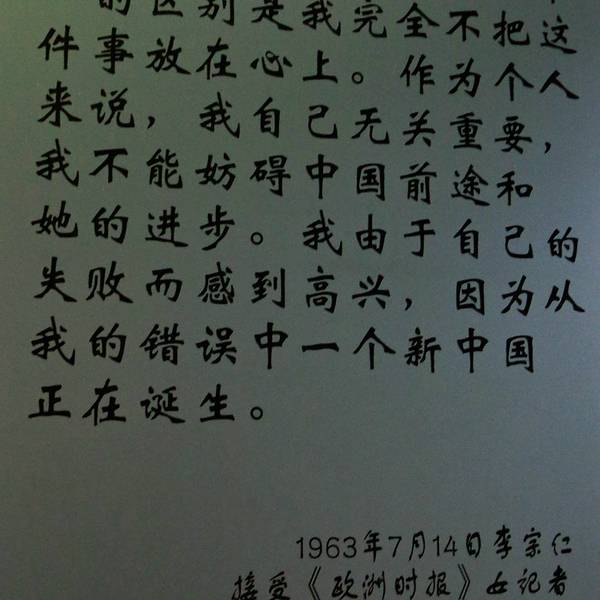 的区别是我完全不把这
件事放在心上。作为个人
来说，我自己无关重要，
我不能妨碍中国前途和
她的进步。我由于自己的
失败而感到高兴，因为从
我的错误中一个新中国
正在诞生。
1963年7月14日李宗仁
接受《欧洲时报》女记者